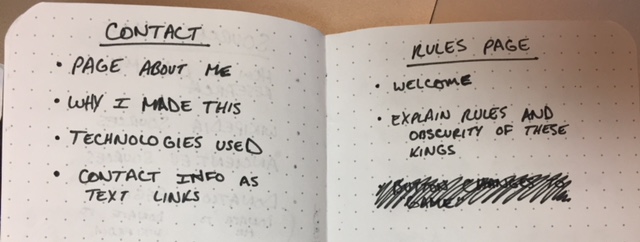 CONTACT
• PAGE ABOUT ME
• WHY I MADE THIS
• TECHNOLOGIES USED
• CONTACT INFO AS
TEXT LINKS
RULES PAGE
• WELCOME
• EXPLAIN RULES AND
OBSCURITY OF THESE
KINGS